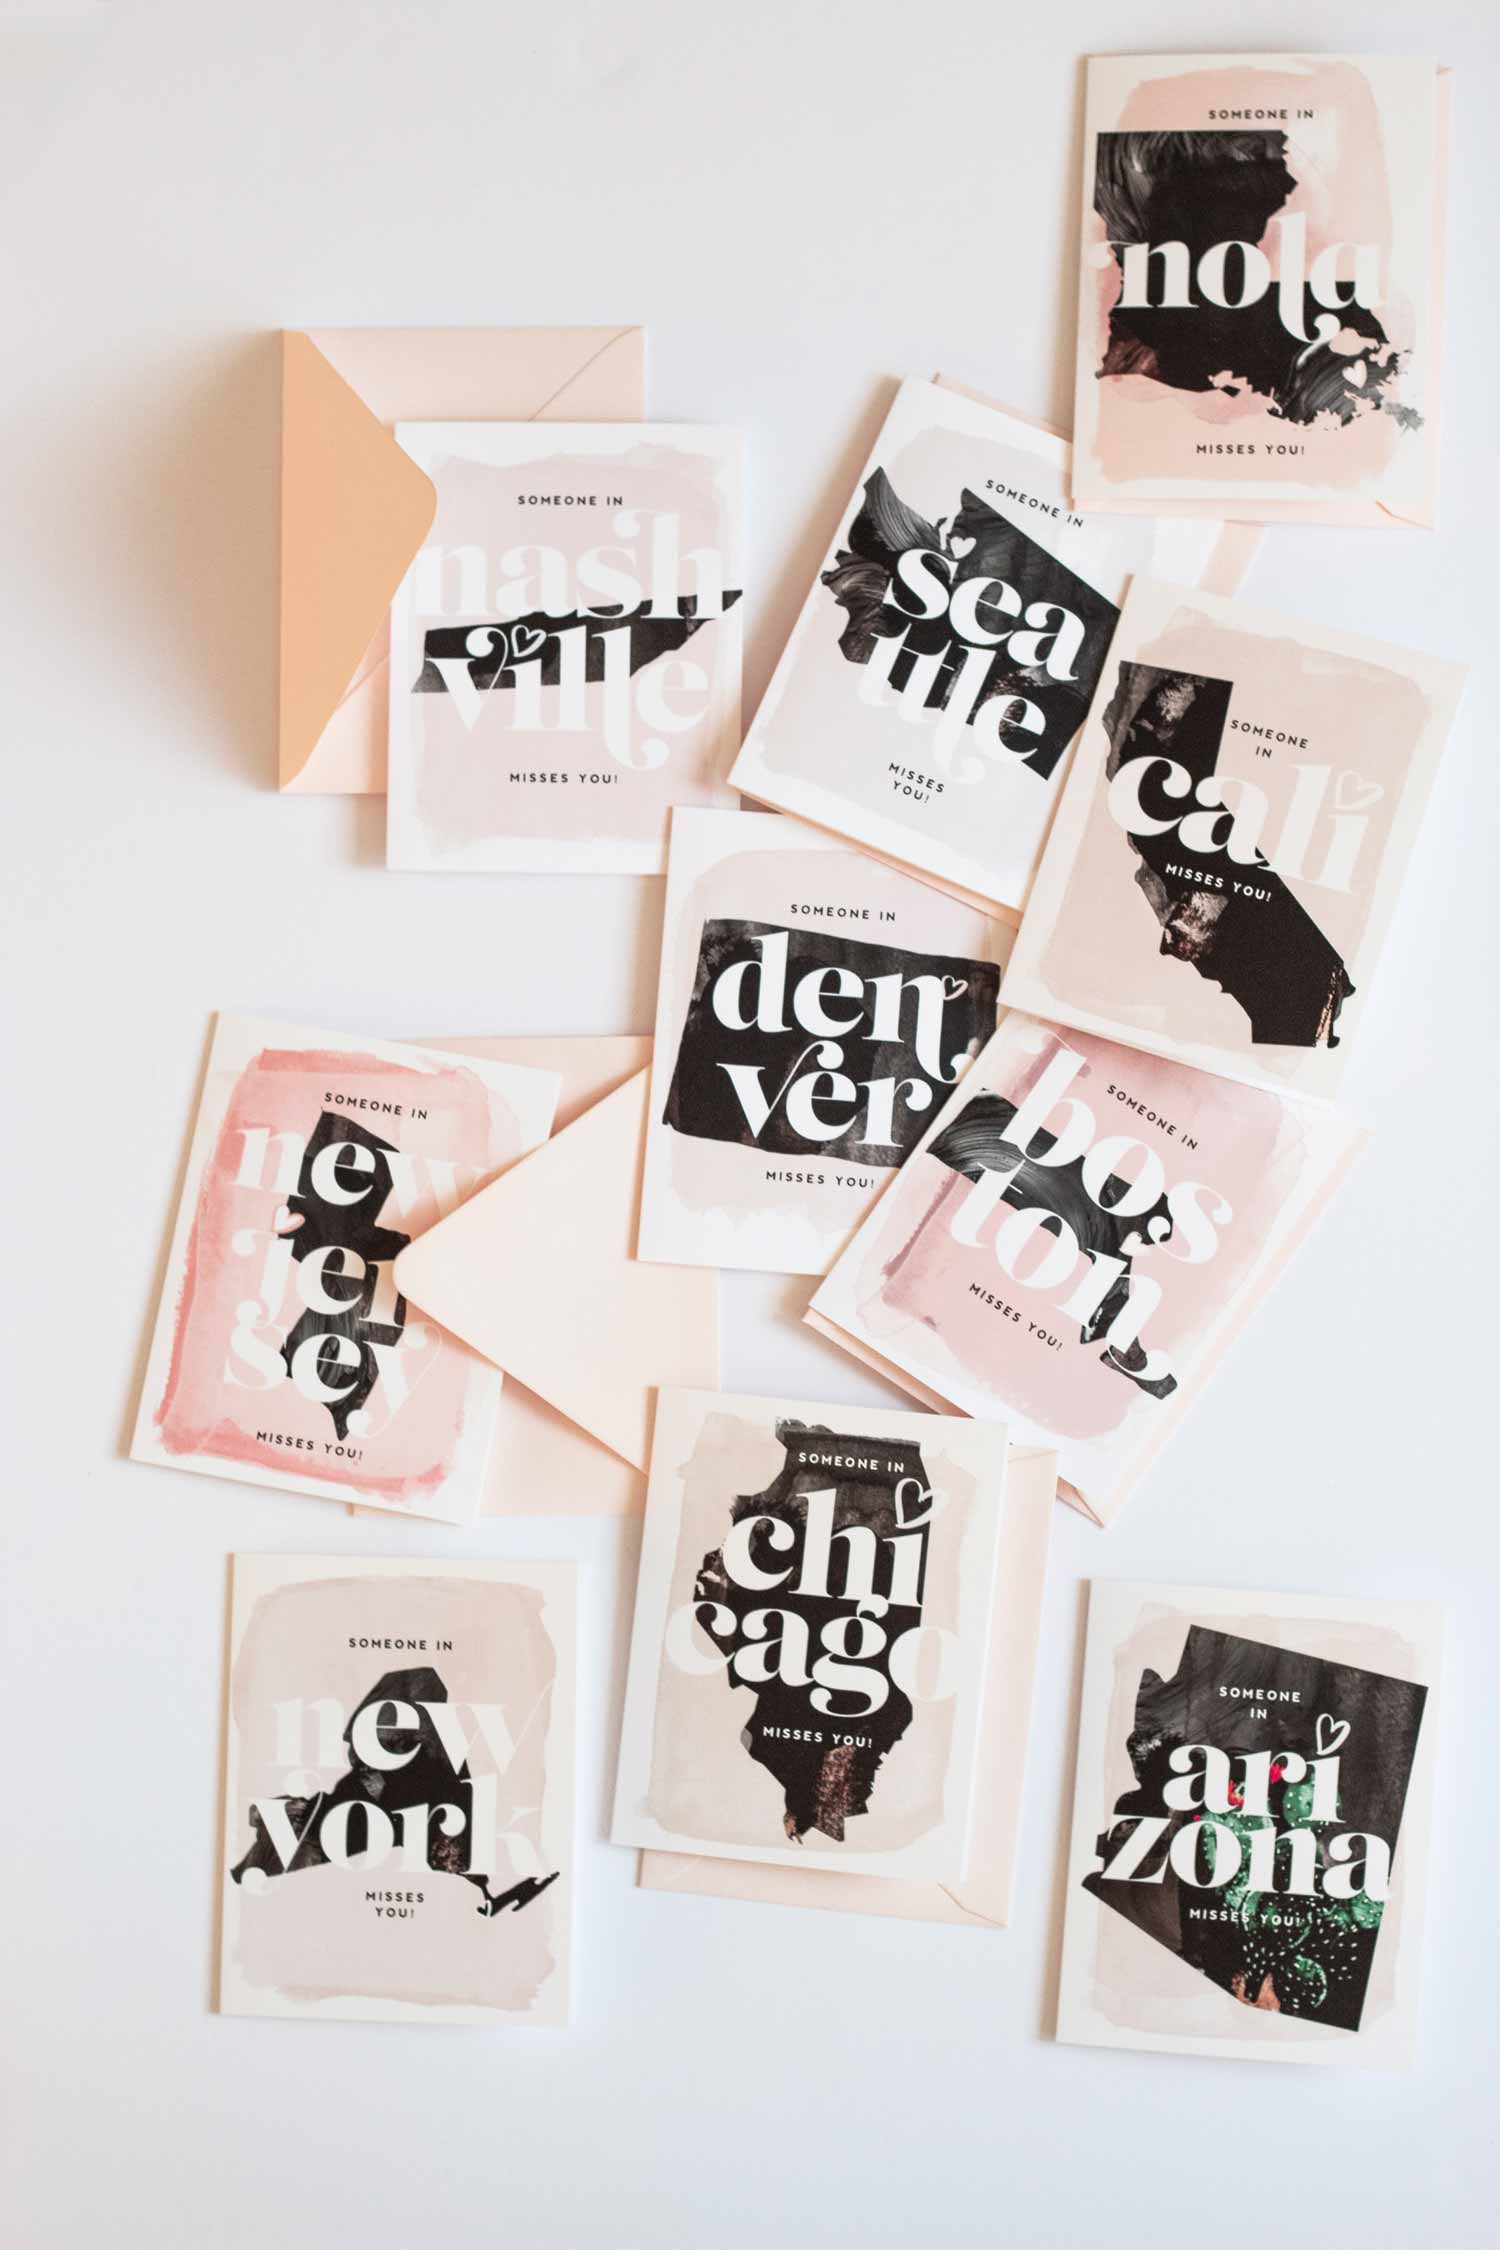 SOMEONE IN
nola
MISSES YOU!
SOMEONE IN
nash
ville
MISSES YOU!
SOMEONE IN
sea
ttle
MISSES
YOU!
SOMEONE
IN
cali
MISSES YOU!
SOMEONE IN
den
ver
MISSES YOU!
SOMEONE IN
bos
ton
MISSES YOU!
SOMEONE IN
new
jer
sey
MISSES YOU!
SOMEONE IN
chi
cago
MISSES YOU!
SOMEONE IN
new
york
MISSES
YOU!
SOMEONE
IN
ari
zona
MISSES YOU!